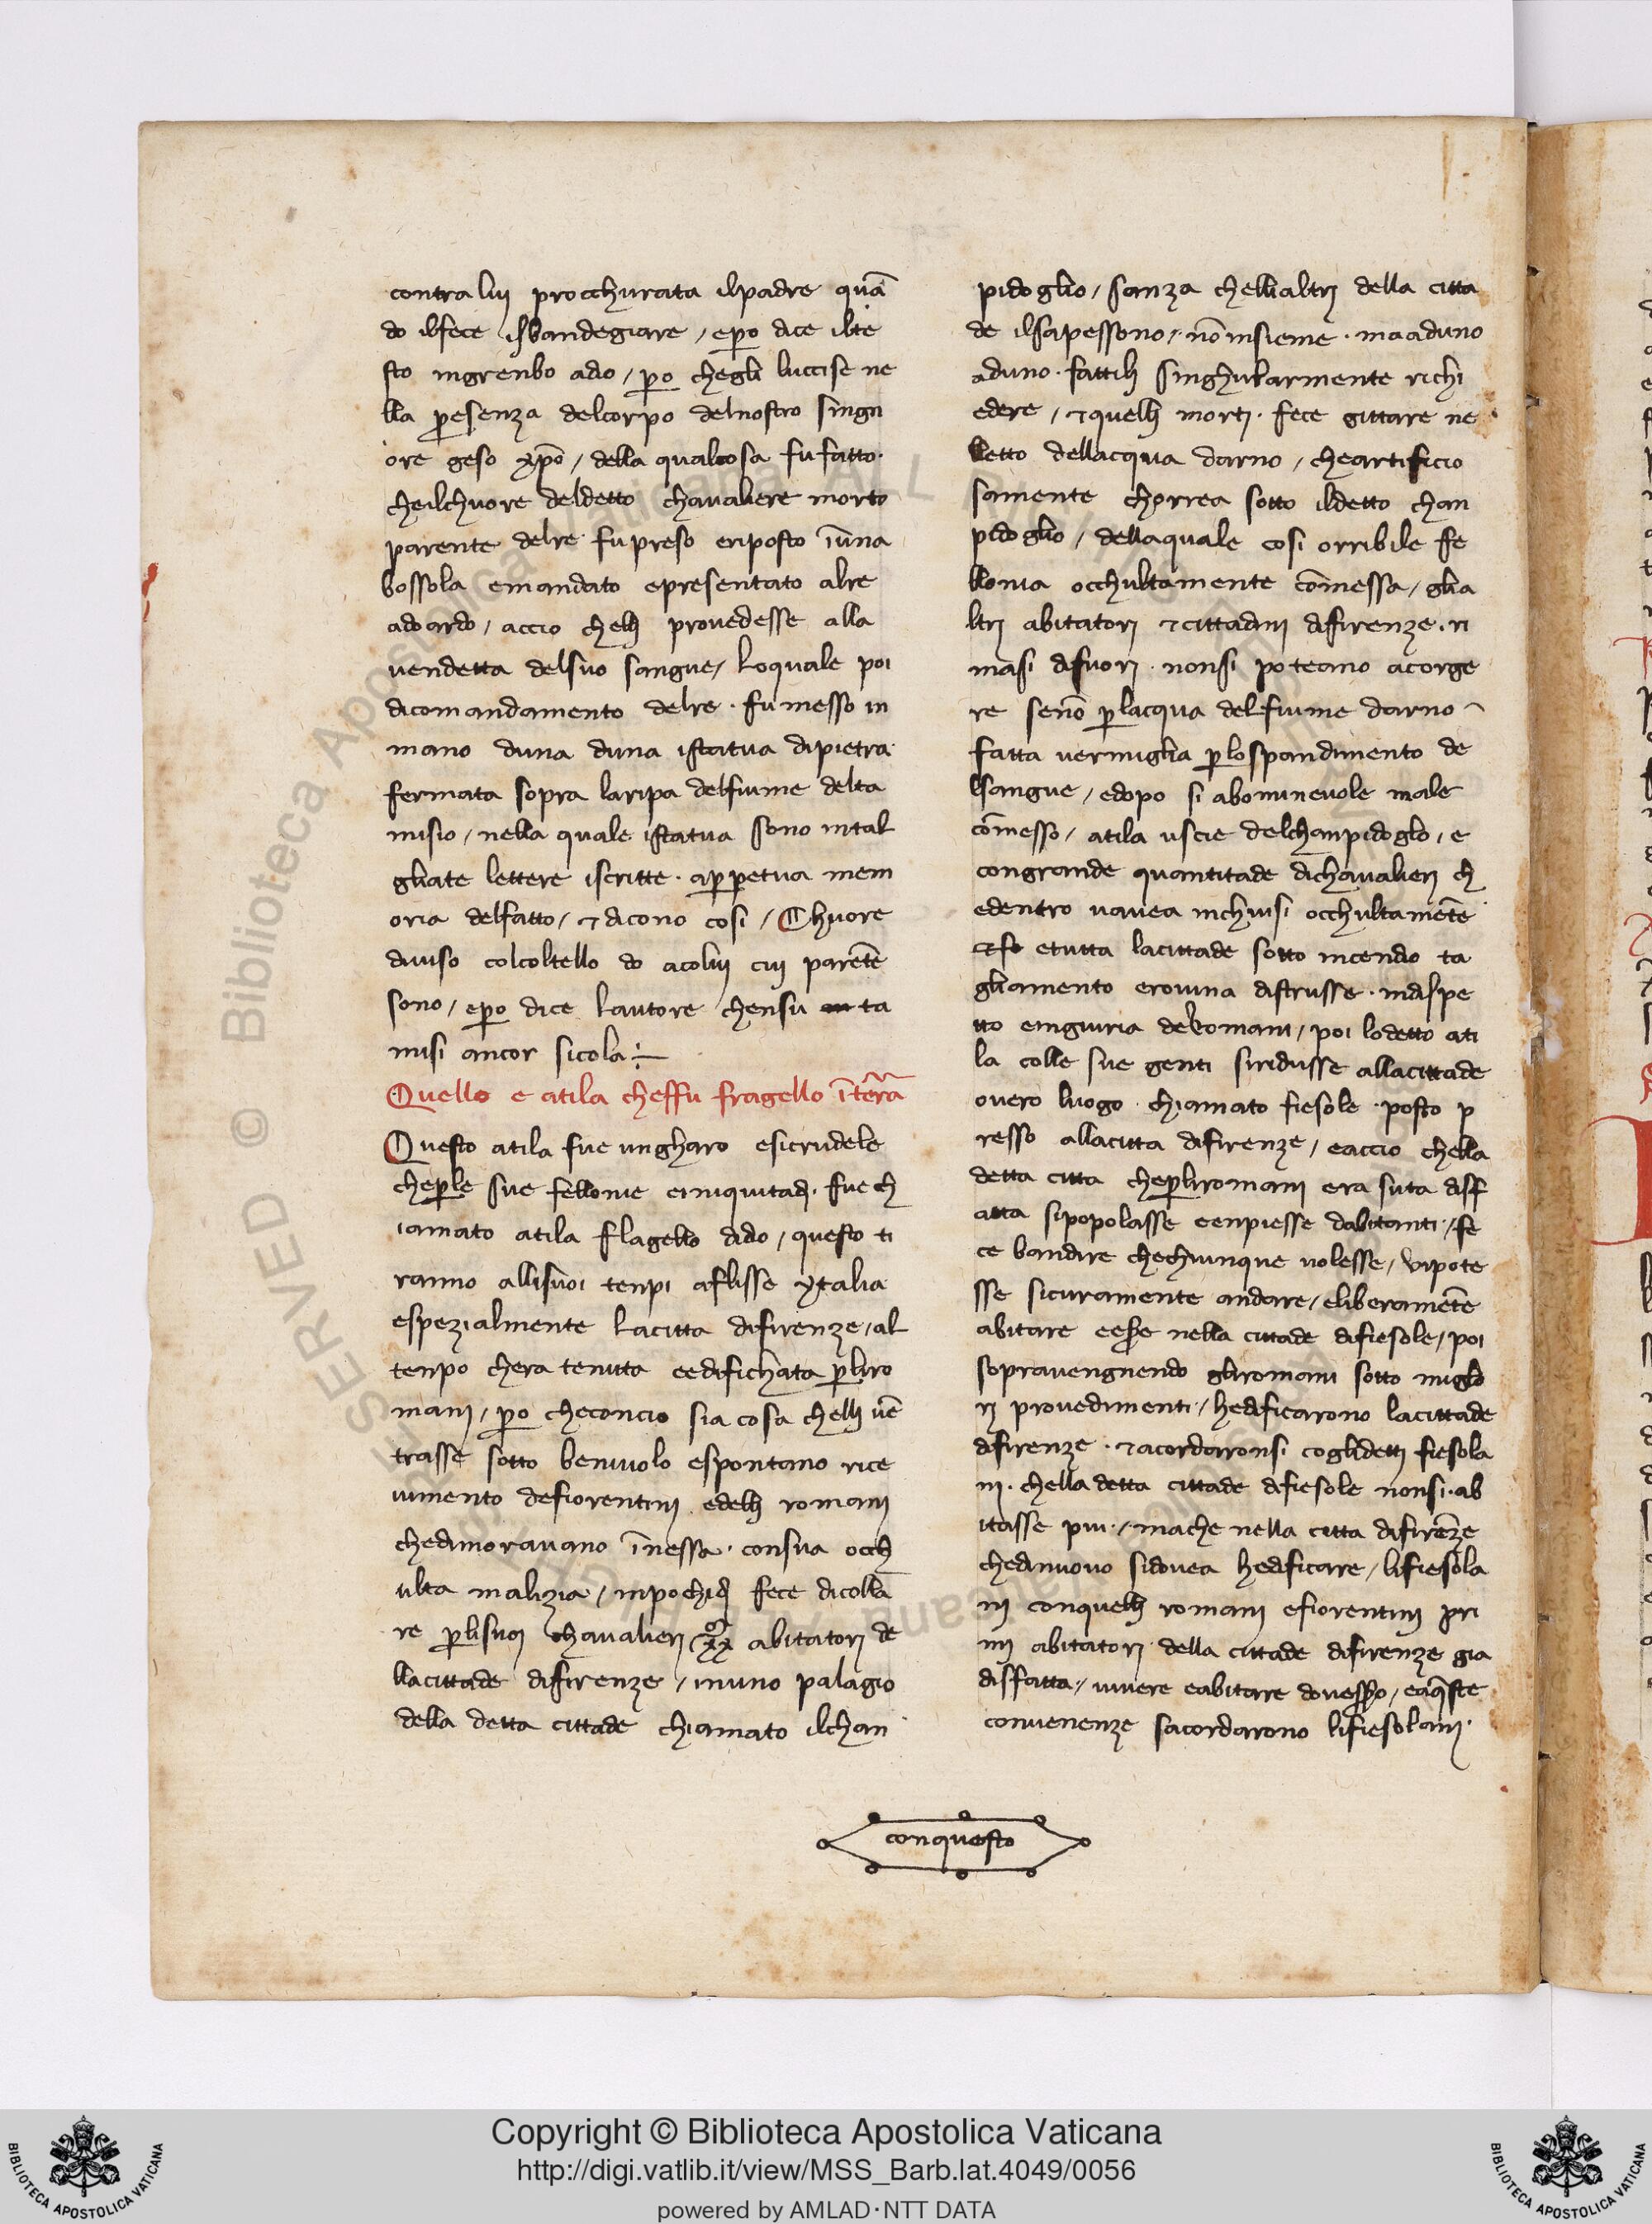 contra lui procchurata ilpadre quā
do ilfece isbandegiare / ep̱o dice ilte
sto ingrenbo adio / p̱o chegli luccise ne
lla p̱esenza delcorpo delnostro singn
iore geso xp̄o / della qualcosa fu fatto·
cheilchuore deldetto chavaliere morto
parente delre · fu preso eriposto ī una
bossola emandato epresentato alre
adoardo / accio chelli provedesse alla
vendetta delsuo sangue / loquale poi
dicomandamento delre · fu messo in
mano duna duna istatua dipietra·
fermata sopra laripa delfiume delta
misio / nella quale istatua sono intal
gliate lettere iscritte · ap̱petua mem
oria delfatto / ⁊ dicono cosi / Chuore
diviso colcoltello do acolui cui parēte
sono / ep̱o dice lautore chensu ta
misi ancor sicola ÷
Quello e atila cheffu fragello ī tērra
Questo atila fue ungharo esicrudele
chep̱le sue fellonie einiquitadi · fue ch
iamato atila flagello dido / questo ti
ranno allisuoi tenpi aflisse ytalia
espezialmente lacitta difirenze / al
tenpo chera tenuta eedifichata p̱liro
mani / p̱o checoncio sia cosa chelli vē
trasse sotto benivolo espontano rice
vimento defiorentini edelli romani
chedimoravano ī nessa · consua occh
ulta malizia / inpochidi fece dicolla
re p̱lisuoi chavalieri xx abitatori de
llacittade difirenze / inuno palagio
della detta cittade chiamato ilchan
pidoglio / sanza chelli altri della citta
de ilsapessono / nō insieme · ma aduno
aduno · fattili singhularmente richi
edere / ⁊ quelli morti · fece gittare ne
lletto dellacqua darno / cheartificio
samente chorrea sotto ildetto chan
pidoglio / dellaquale cosi orribile fe
llonia occhultamente cōmessa / glia
ltri abitatori ⁊ cittadini difirenze · ri
masi difuori · nonsi poteano acorge
re senō p̱lacqua delfiume darno
fatta vermiglia p̱lospandimento de
lsangue / edopo si abominevole male
cōmesso / atila uscie delchanpidoglo / e
congrande quantitade dichavalieri ch
edentro vavea inchiusi occhultamēte
etutta lacittade sotto incendio ta
gliamento erovina distrusse · indispe
tto eingiuria deRomani / poi lodetto ati
la colle sue genti siridusse allacittade
overo luogo · chiamato fiesole · posto p
resso allacitta difirenze / eaccio chella
detta citta chep̱liromani era suta disf
atta sipopolasse eenpiesse dabitanti · / fe
ce bandire chechiunque volesse / vipote
sse sicuramente andare / eliberamēte
abitare eesse nella cittade difiesole / poi
sopravengnendo gliromani sotto miglio
ri provedimenti · / hedificarono lacittade
difirenze · ⁊ acordaronsi coglidetti fiesola
ni · chella detta cittade difiesole nonsi · ab
itasse piu · / mache nella citta difirēze
chedinuovo sidovea hedificare / lifiesola
ni conquelli romani efiorentini pri
mi abitatori · della cittade difirenze gia
disfatta · / vivere eabitare dovessero / eaq̄ste
convenenze sacordarono lifiesolani ·
conquesto
SERVED © Biblioteca Apostolica Vaticana
Copyright © Biblioteca Apostolica Vaticana
http://digi.vatlib.it/view/MSS_Barb.lat.4049/0056
powered by AMLAD·NTT DATA
BIBLIOTECA APOSTOLICA VATICANA
BIBLIOTECA APOSTOLICA VATICANA